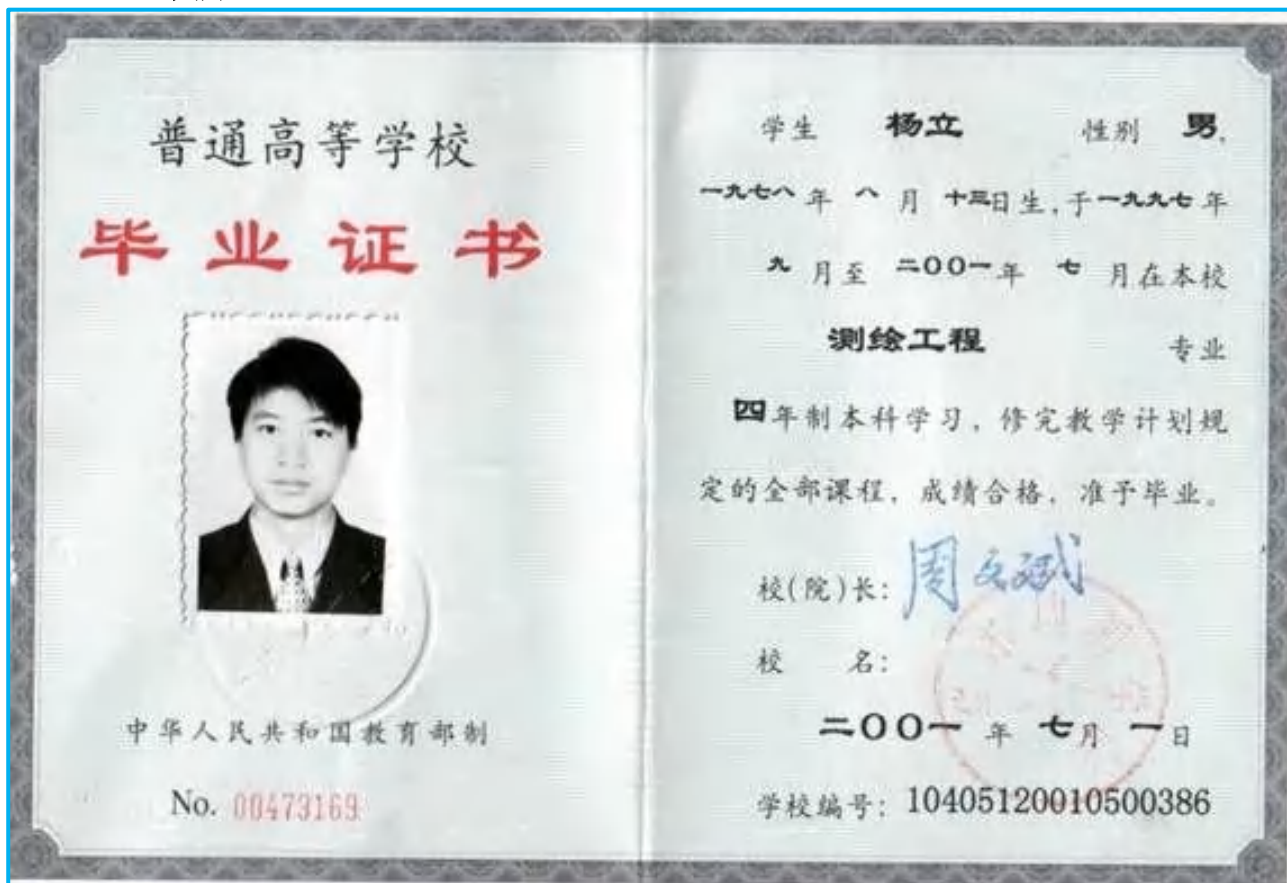 普通高等学校
毕业证书
中华人民共和国教育部制
No. 00473169
学生 杨立 性别 男,
一九七八年 八 月 十三日生,于一九九七年
九 月至 二〇〇一年 七 月在本校
测绘工程 专业
四年制本科学习,修完教学计划规
定的全部课程,成绩合格,准予毕业。
校(院)长: 周文斌
校 名:
二〇〇一 年 七月 一日
学校编号: 10405120010500386